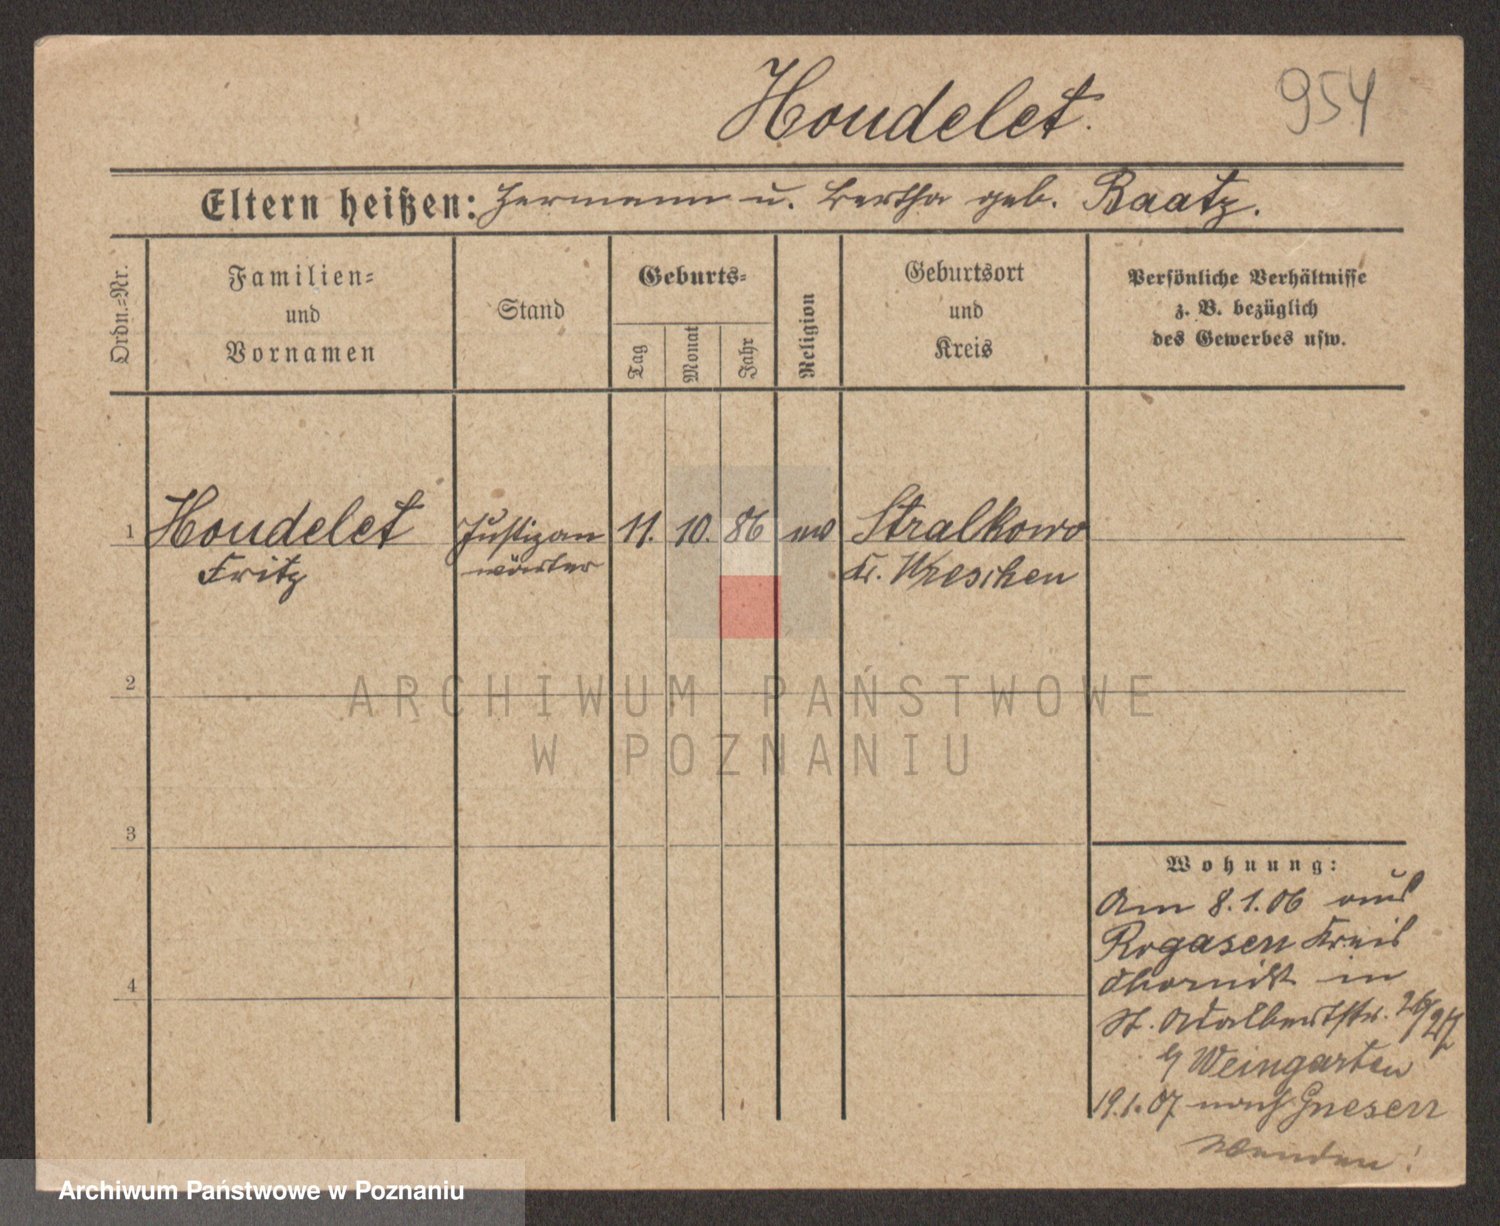 Houdelet.
954
Eltern heißen: Hermann u. Bertha geb. Raatz.
Ordn.=Nr.
Familien=
und
Vornamen
Stand
Geburts=
Tag
Monat
Jahr
Religion
Geburtsort
und
Kreis
Persönliche Verhältnisse
z. B. bezüglich
des Gewerbes usw.
1
Houdelet
Fritz
Justizan
wärter
11.
10.
86
ev
Stralkowo
Kr. Wreschen
2
3
4
ARCHIWUM PAŃSTWOWE
W POZNANIU
Wohnung:
Am 8.1.06 aus
Rogasen Kreis
Obornik in
St. Adalbertstr. 26/27
b/ Weingarten
19.1.07 nach Gnesen
Wenden!
Archiwum Państwowe w Poznaniu